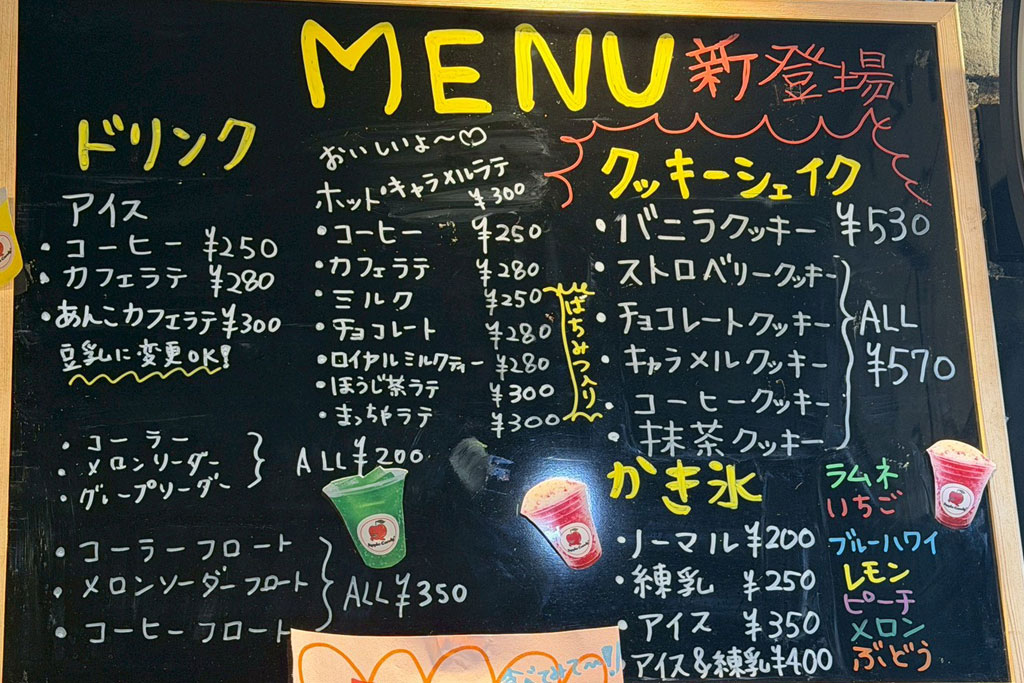 MENU
新登場
ドリンク
アイス
・コーヒー ¥250
・カフェラテ ¥280
・あんこカフェラテ ¥300
豆乳に変更OK!
・コーラー
・メロンソーダー
・グレープソーダー
ALL ¥200
・コーラーフロート
・メロンソーダーフロート
・コーヒーフロート
ALL ¥350
おいしいよ〜♡
ホットキャラメルラテ ¥300
・コーヒー ¥250
・カフェラテ ¥280
・ミルク ¥250
・チョコレート ¥280
・ロイヤルミルクティー ¥280
・ほうじ茶ラテ ¥300
・まっちゃラテ ¥300
はちみつ入り
クッキーシェイク
・バニラクッキー ¥530
・ストロベリークッキー
・チョコレートクッキー
・キャラメルクッキー
・コーヒークッキー
・抹茶クッキー
ALL
¥570
かき氷
・ノーマル ¥200
・練乳 ¥250
・アイス ¥350
・アイス&練乳 ¥400
ラムネ
いちご
ブルーハワイ
レモン
ピーチ
メロン
ぶどう
食べてみて〜!!